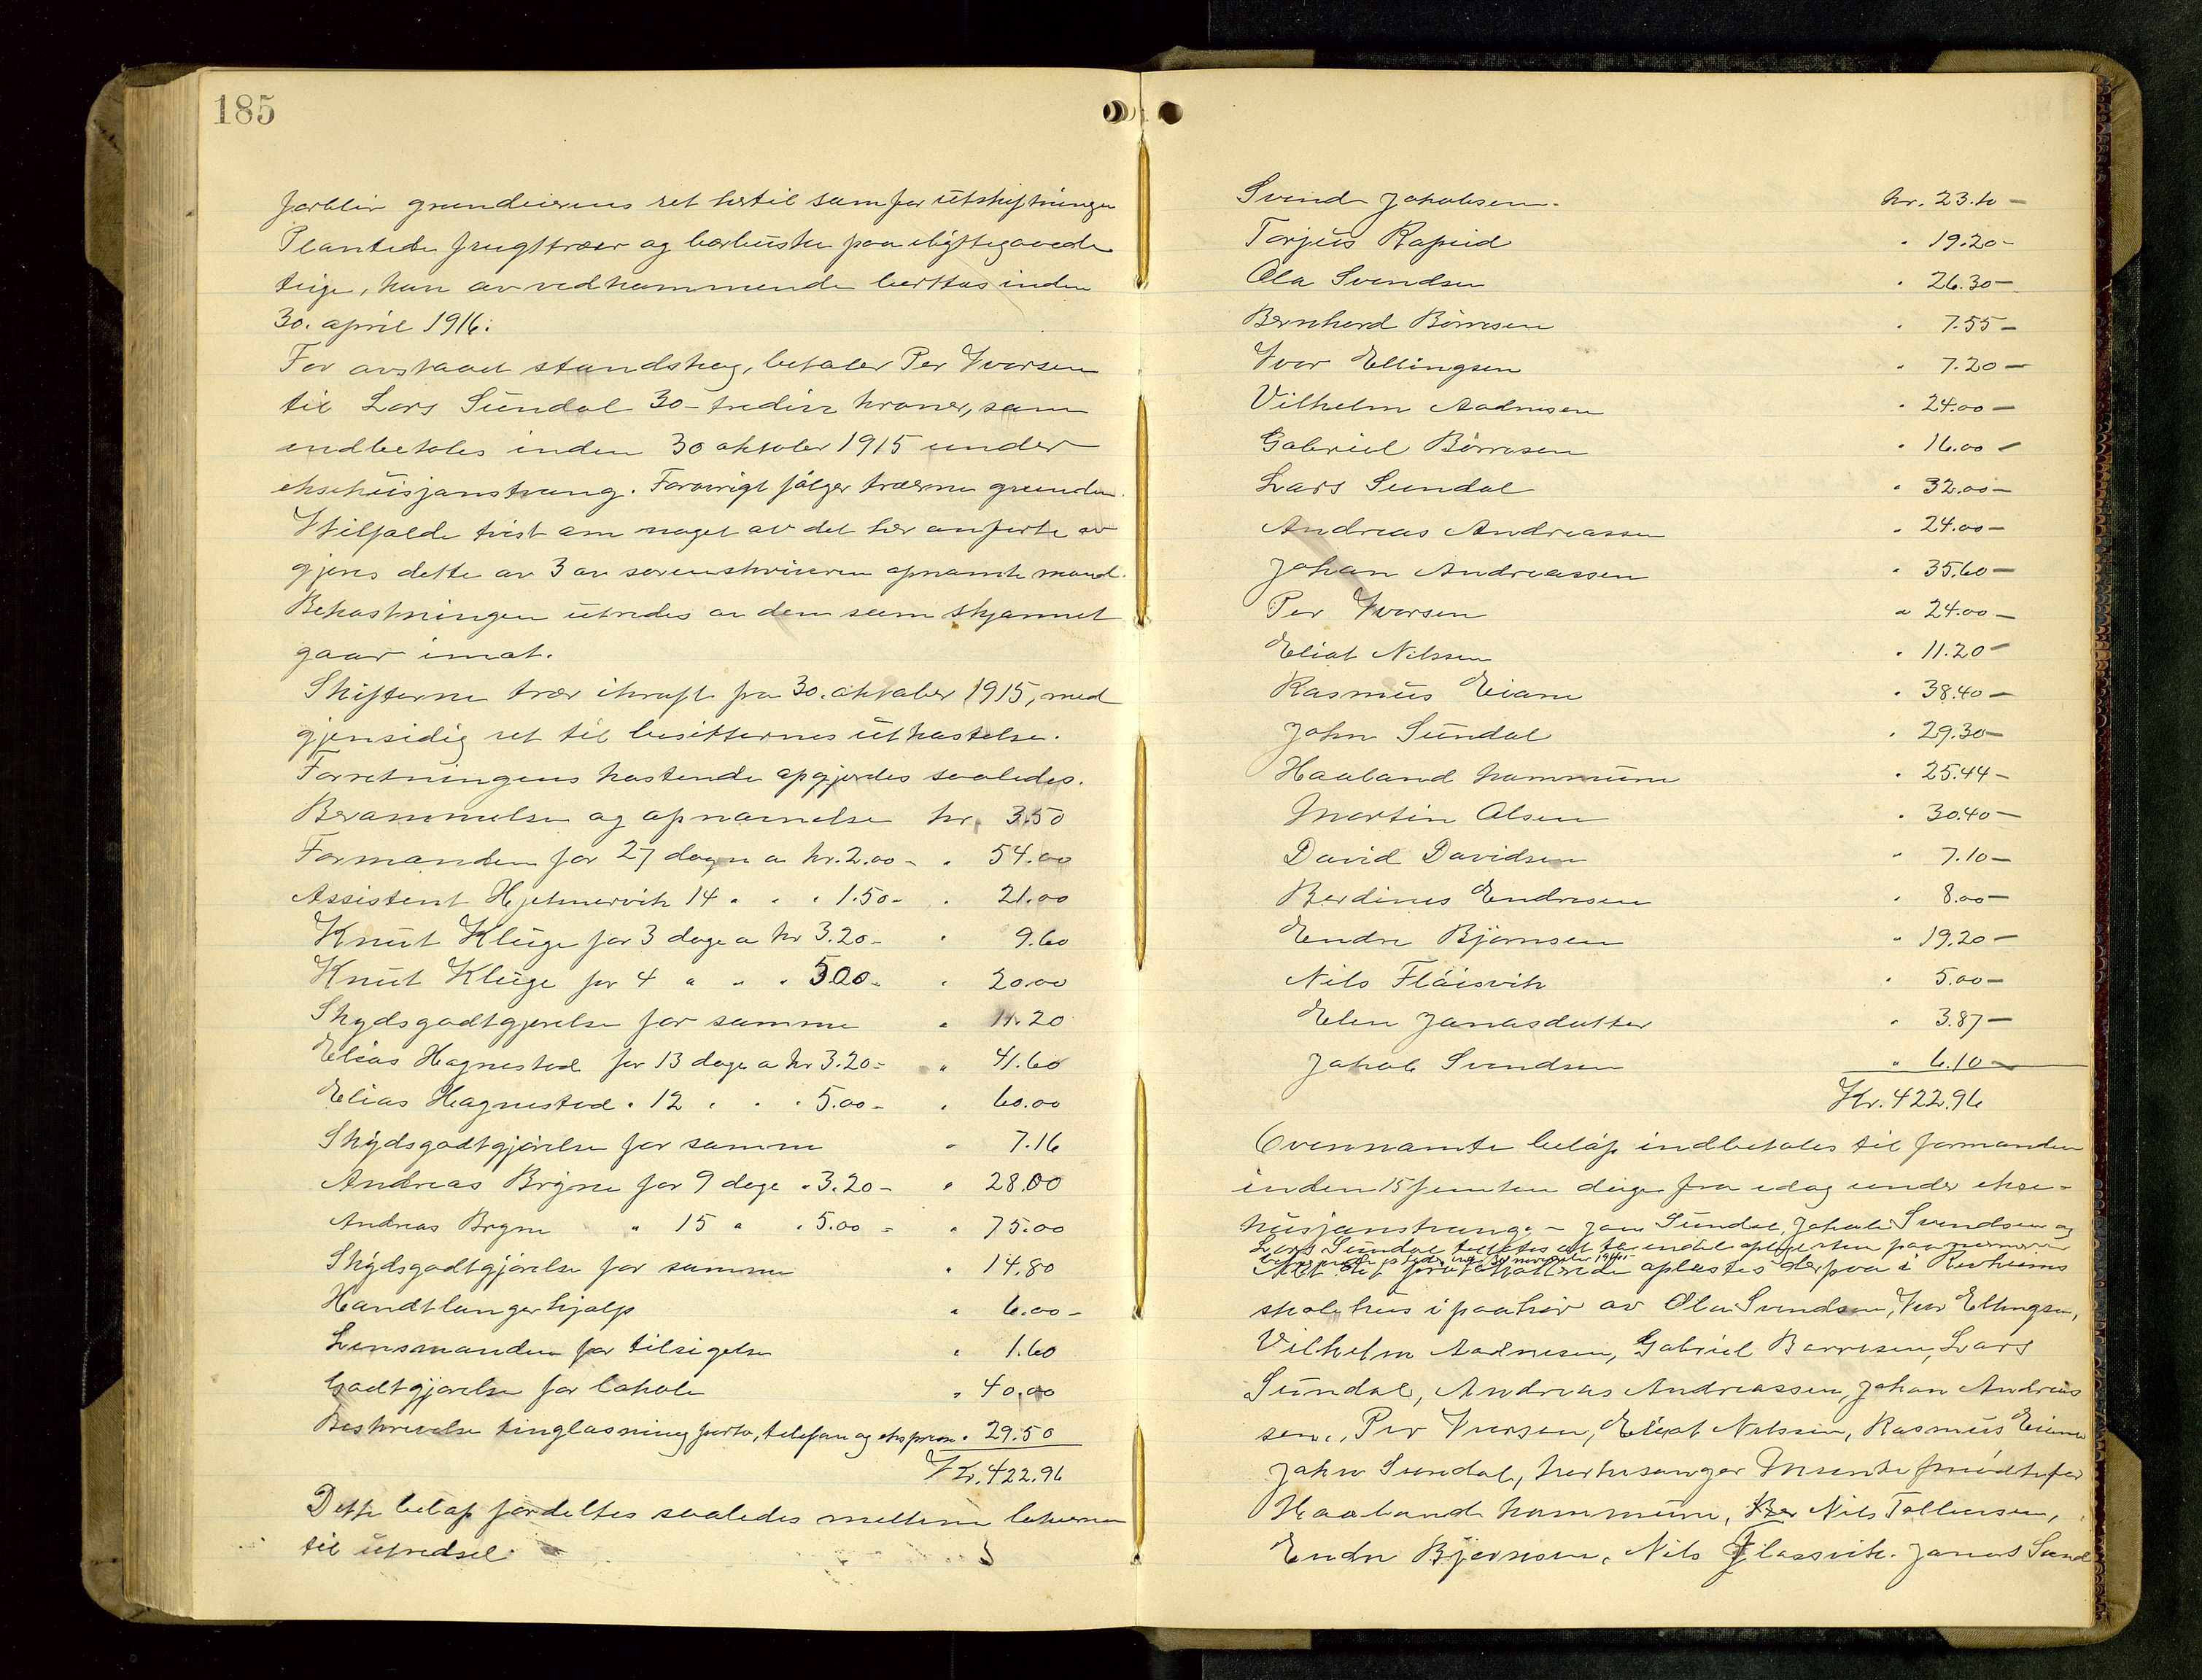 185
forblir grundeierens ret hertil som før utskiftningen
Plantede frugttrær og bærbuske paa
teige, kan av vedkommende borttas inden
30. april 1916.
For avstaaet standskog, betaler Per Iversen
til Lars Sundal 30 - tredive kroner, som
indbetales inden 30 oktober 1915 under
eksekusjonstvang. Forøvrigt følger trærne grunden.
I tilfælde tvist om noget av det her anførte av
gjøres dette av 3 av sorenskriveren opnævnte mænd.
Bekostningen utredes av dem som skjønnet
gaar imot.
Skifterne trær ikraft fra 30. oktober 1915, med
gjensidig ret til besitternes utkastelse.
Forretningens kostende opgjordes saaledes.
Berammelse og opnævnelse kr. 3.50
Formanden for 27 dager a kr. 2.00 - " 54.00
Assistent Hjelmervik 14 " " " 1.50 - " 21.00
Knut Kluge for 3 dage a kr 3.20 - " 9.60
Knut Kluge for 4 " " " 5.00 - " 20.00
Skydsgodtgjørelse for samme " 11.20
Elias Hagnestad for 13 dage a kr 3.20 - " 41.60
Elias Hagnestad " 12 " " " 5.00 - " 60.00
Skydsgodtgjørelse for samme " 7.16
Andreas Bryne for 9 dage " 3.20 - " 28.00
Andreas Bryne " 15 " " 5.00 - " 75.00
Skydsgodtgjørelse for samme " 14.80
Handtlangerhjælp " 6.00 -
Lensmanden for tilsigelse " 1.60
Godtgjørelse for lokale " 40.00
Beskrivelse tinglæsning porto, telefon og ekspren. " 29.50
Kr. 422.96
Dette beløp fordeltes saaledes mellem lodeierne
til utredsel
Svend Jakobsen. kr. 23.10 -
Torjus Rapeid " 19.20 -
Ola Svendsen " 26.30 -
Bernhard Børresen " 7.55 -
Ivar Ellingsen " 7.20 -
Vilhelm Aadnesen " 24.00 -
Gabriel Børresen " 16.00 -
Lars Sundal " 32.00 -
Andreas Andreassen " 24.00 -
Johan Andreassen " 35.60 -
Per Iversen " 24.00 -
Eliat Nilssen " 11.20 -
Rasmus Eiane " 38.40 -
John Sundal " 29.30 -
Haaland kommune " 25.44 -
Martin Olsen " 30.40 -
David Davidsen " 7.10 -
Berdines Endresen " 8.00 -
Endre Bjørnsen " 19.20 -
Nils Flåisvik " 5.00 -
Elen Jonasdatter " 3.87 -
Jakob Svendsen " 6.10 -
Kr. 422.96
Ovennævnte beløp indbetales til formanden
inden 15 femten dage fra idag under ekse-
kusjonstvang. - Jon Sundal, Jakob Svendsen og
Lars Sundal tillates at
30 november 1915
Alt det oplæstes derpaa i Revheims
skolehus i paahør av Ola Svendsen, Ivar Ellingsen,
Vilhelm Aadnesen, Gabriel Børresen, Lars
Sundal, Andreas Andreassen, Johan Andreas
sen., Per Iversen, Eliat Nilssen, Rasmus Eiane
John Sundal, kirkesanger for
Haaland kommune, Nils Tollersen,
Endre Bjørnsen, Nils Flaasvik. Jonas Sund